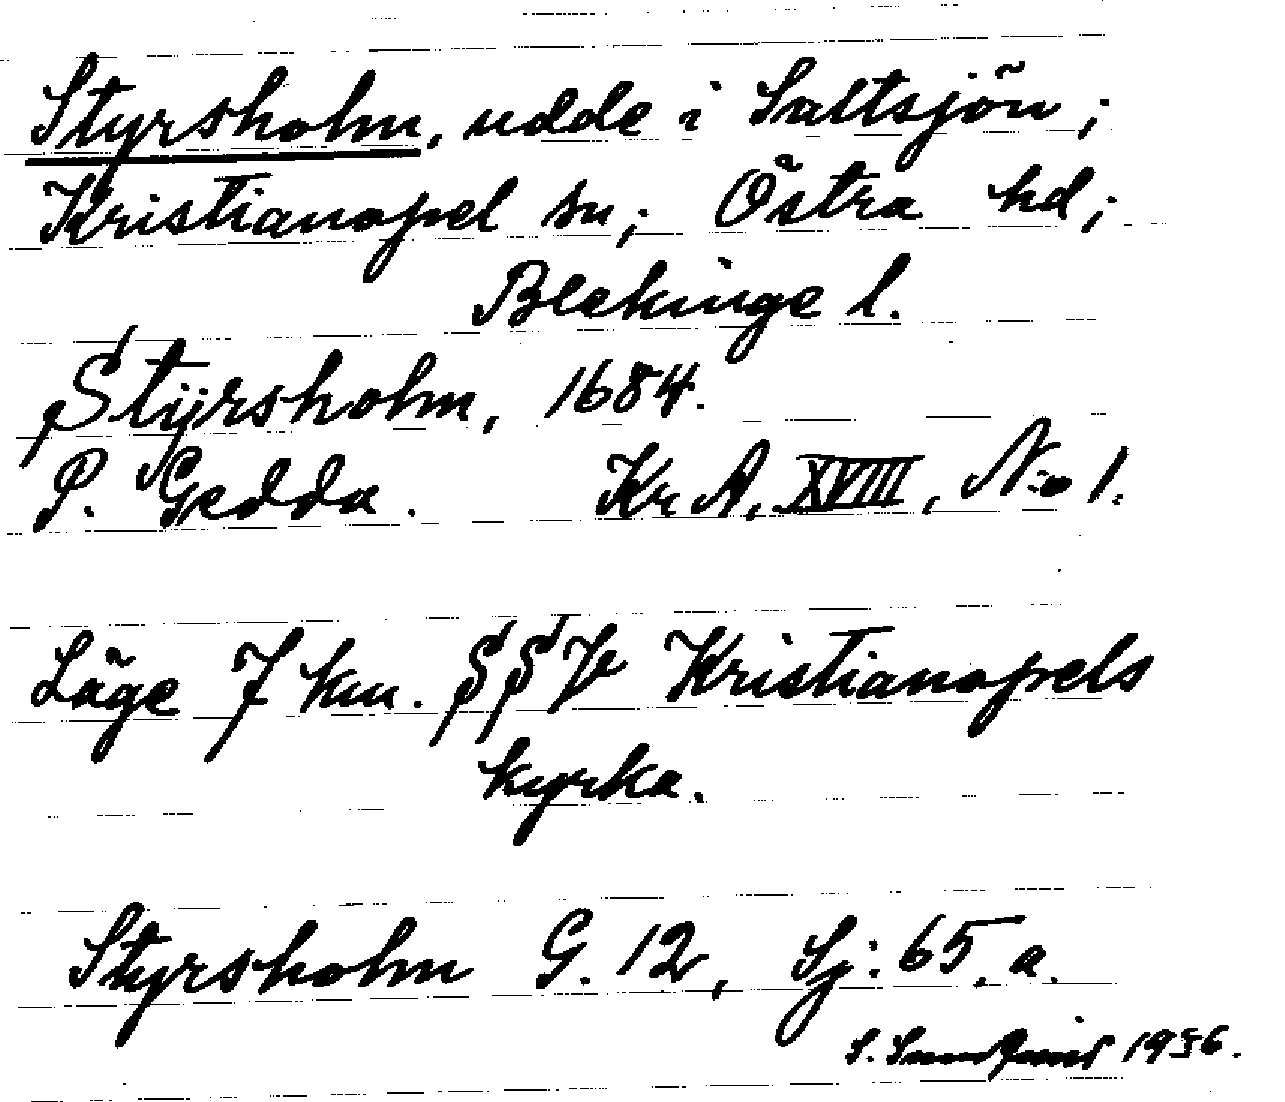 Styrsholm, udde i Saltsjön;
Kristianopel sn; Östra hd;
Blekinge l.
Stÿrsholm, 1684.
P. Gedda. Kr A. XVIII, No 1.
Läge 7 km. SSV Kristianopels
kyrka.
Styrsholm G. 12, Sj: 65. a.
S. 1936.